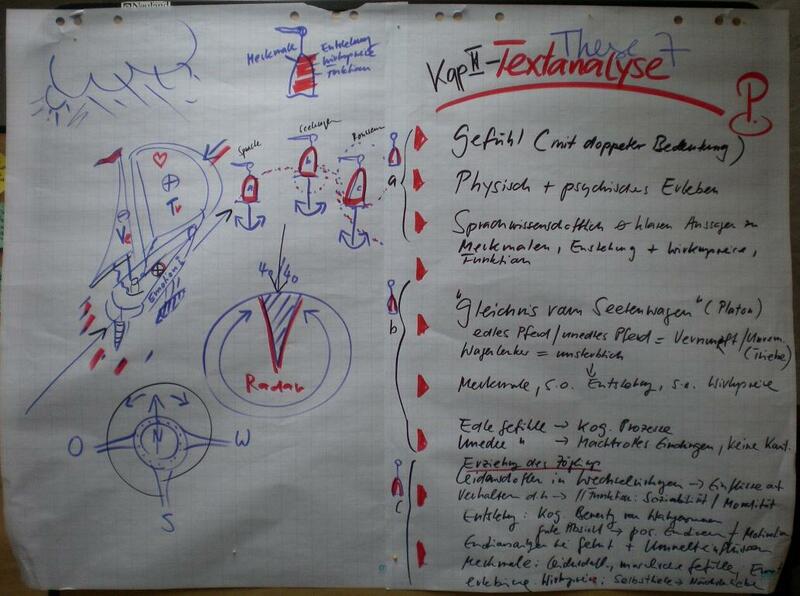 Neuland
Merkmale
Entstehung
Wirkungsweise
Funktion
Seelwagen
Sprache
Rousseau
a
b
c
Emotions
40 / 40
Radar
N
O
W
S
These 7
Kap II - Textanalyse
P.
a
Gefühl (mit doppelter Bedeutung)
Physisch + psychisches Erleben
Sprachwissenschaftlich klaren Aussagen zu
Merkmalen, Entstehung + Wirkungsweise,
Funktion
b
"Gleichnis vom Seelenwagen" (Platon)
edles Pferd / unedles Pferd = Vernunft /
(Triebe)
Wagenlenker = unsterblich
Merkmale, s.o. Entstehung, s.o. Wirkungsweise
Edle Gefühle → Kog. Prozesse
Unedle " → Machtvolles Eindringen, keine
Erziehung des Zöglings
c
Leidenschaften in Wechselwirkungen → Einflüsse auf
Verhalten d.h → Funktion: Sozialität / Moralität
Entstehung: Kog.
gute Absicht → pos. + Motivation
+ Umwelteinflüssen
Merkmale: Leidenschaft, moralische Gefühle,
Wirkungsweise: Selbstliebe → Nächstenliebe